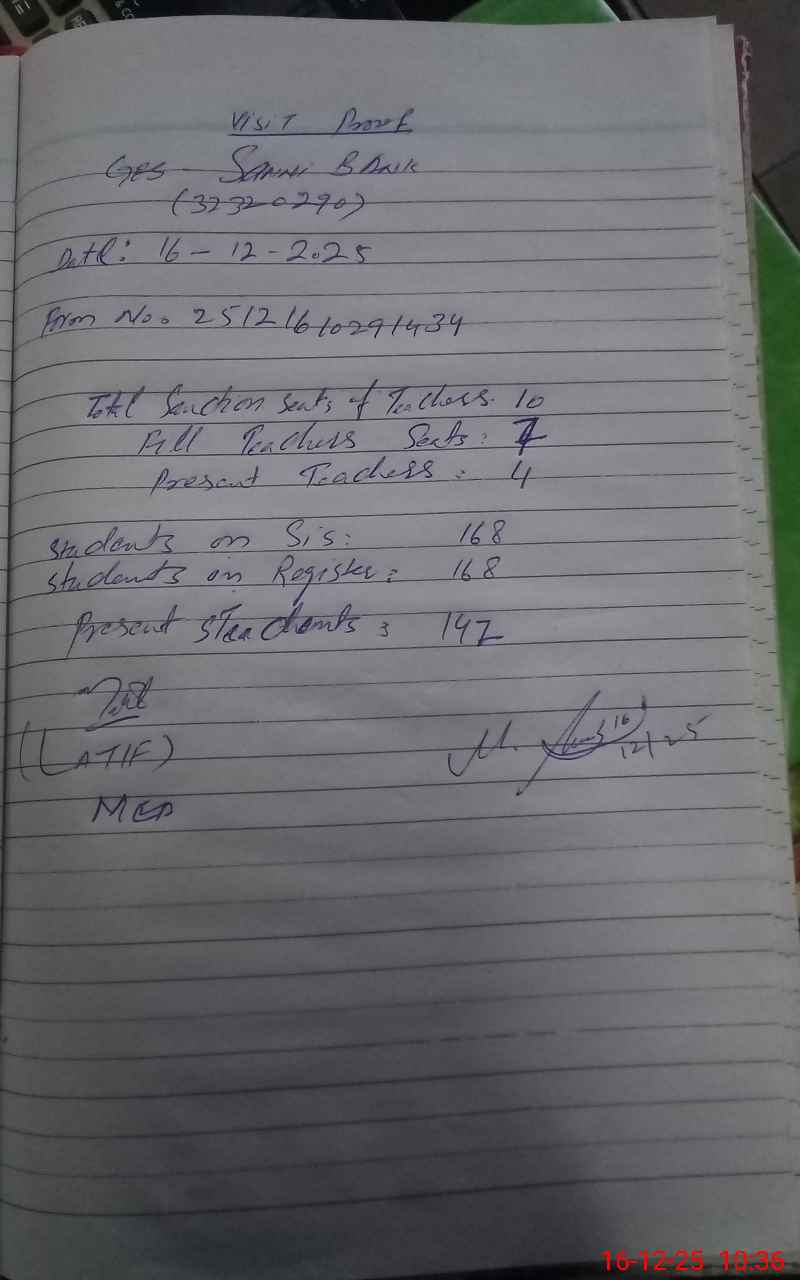 Visit Proof
GES Sanni Bank
(32320290)
Date: 16 - 12 - 2025
Form No. 25121610291434
Total Sanction seats of Teachers. 10
Fill Teachers Seats: 7
Present Teachers: 4
students on Sis: 168
students on Register: 168
Present Students: 142
(LATIF)
MEA
M.
16/12/25
16-12-25 10:36